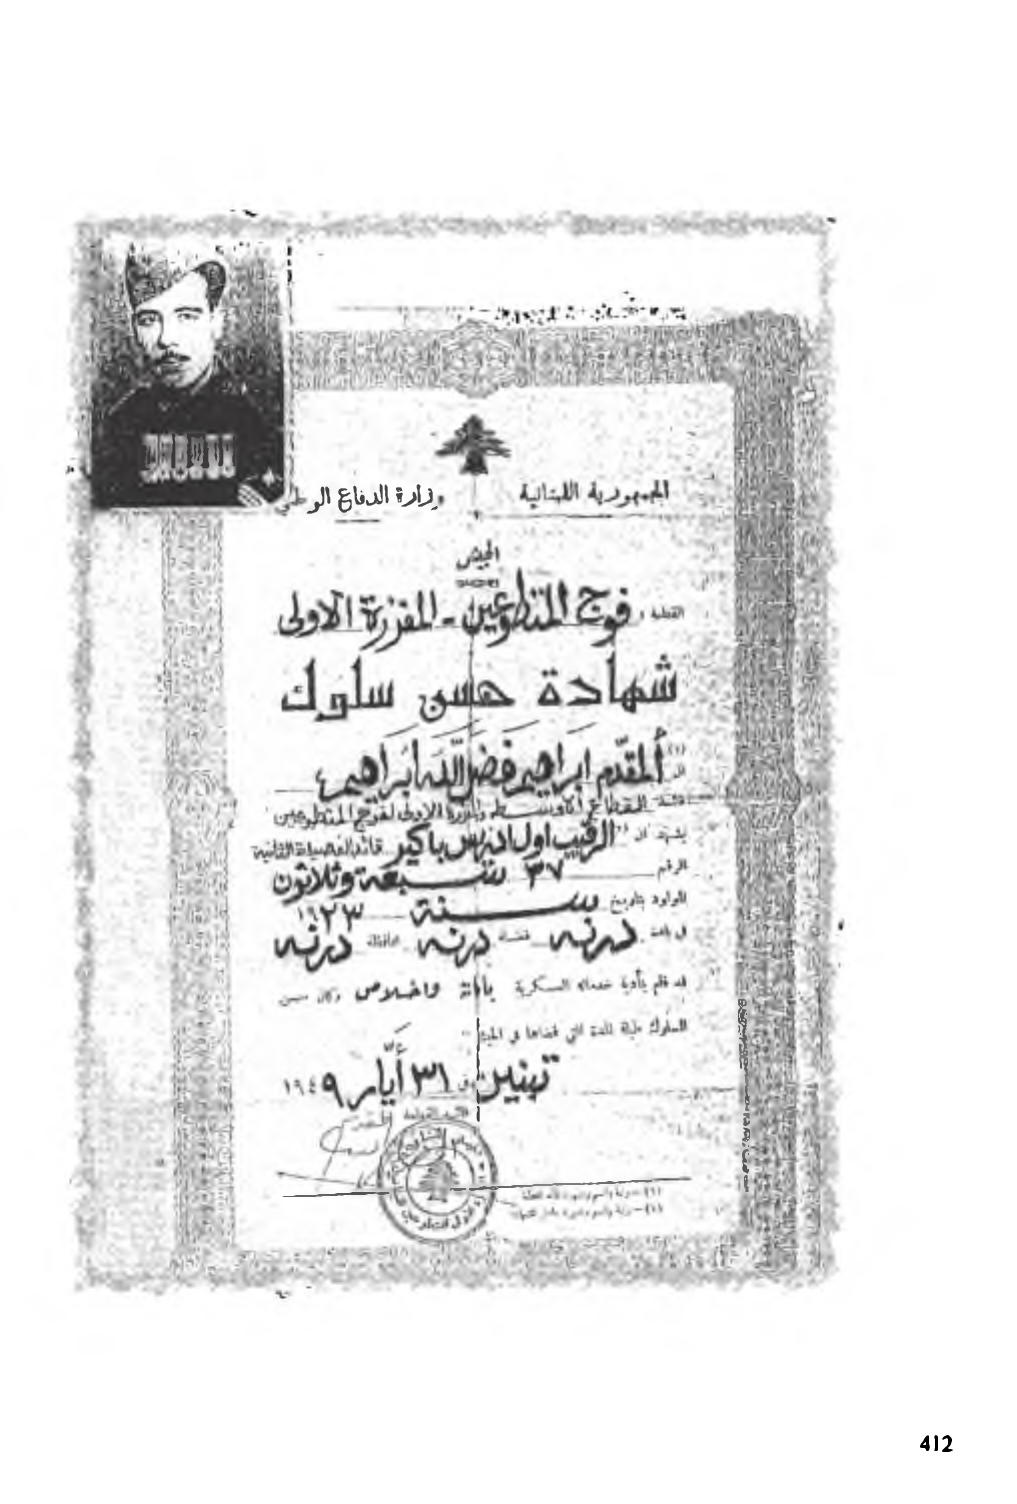 الجمهورية اللبنانية
وزارة الدفاع الوطني
الجيش
القطعة : فوج المتطوعين - المفرزة الاولى
شهادة حسن سلوك
المقدّم ابراهيم فضل الله ابراهيم
قائد القطاع الاوسط والمفرزة الاولى لفوج المتطوعين
يشهد ان الرقيب اول ادريس باكير قائد الفصيلة الثانية
الرقم ٣٧ سبعة وثلاثون
المولود بتاريخ سنة ١٩٢٣
في بلدة درنه قضاء درنه محافظة درنه
قد قام بتأدية خدماته العسكرية بامانة واخلاص وكان حسن
السلوك طيلة المدة التي قضاها في الجيش
تبنين في ٣١ أيّار ١٩٤٩
(١) - رتبة واسم وشهرة قائد القطعة
412